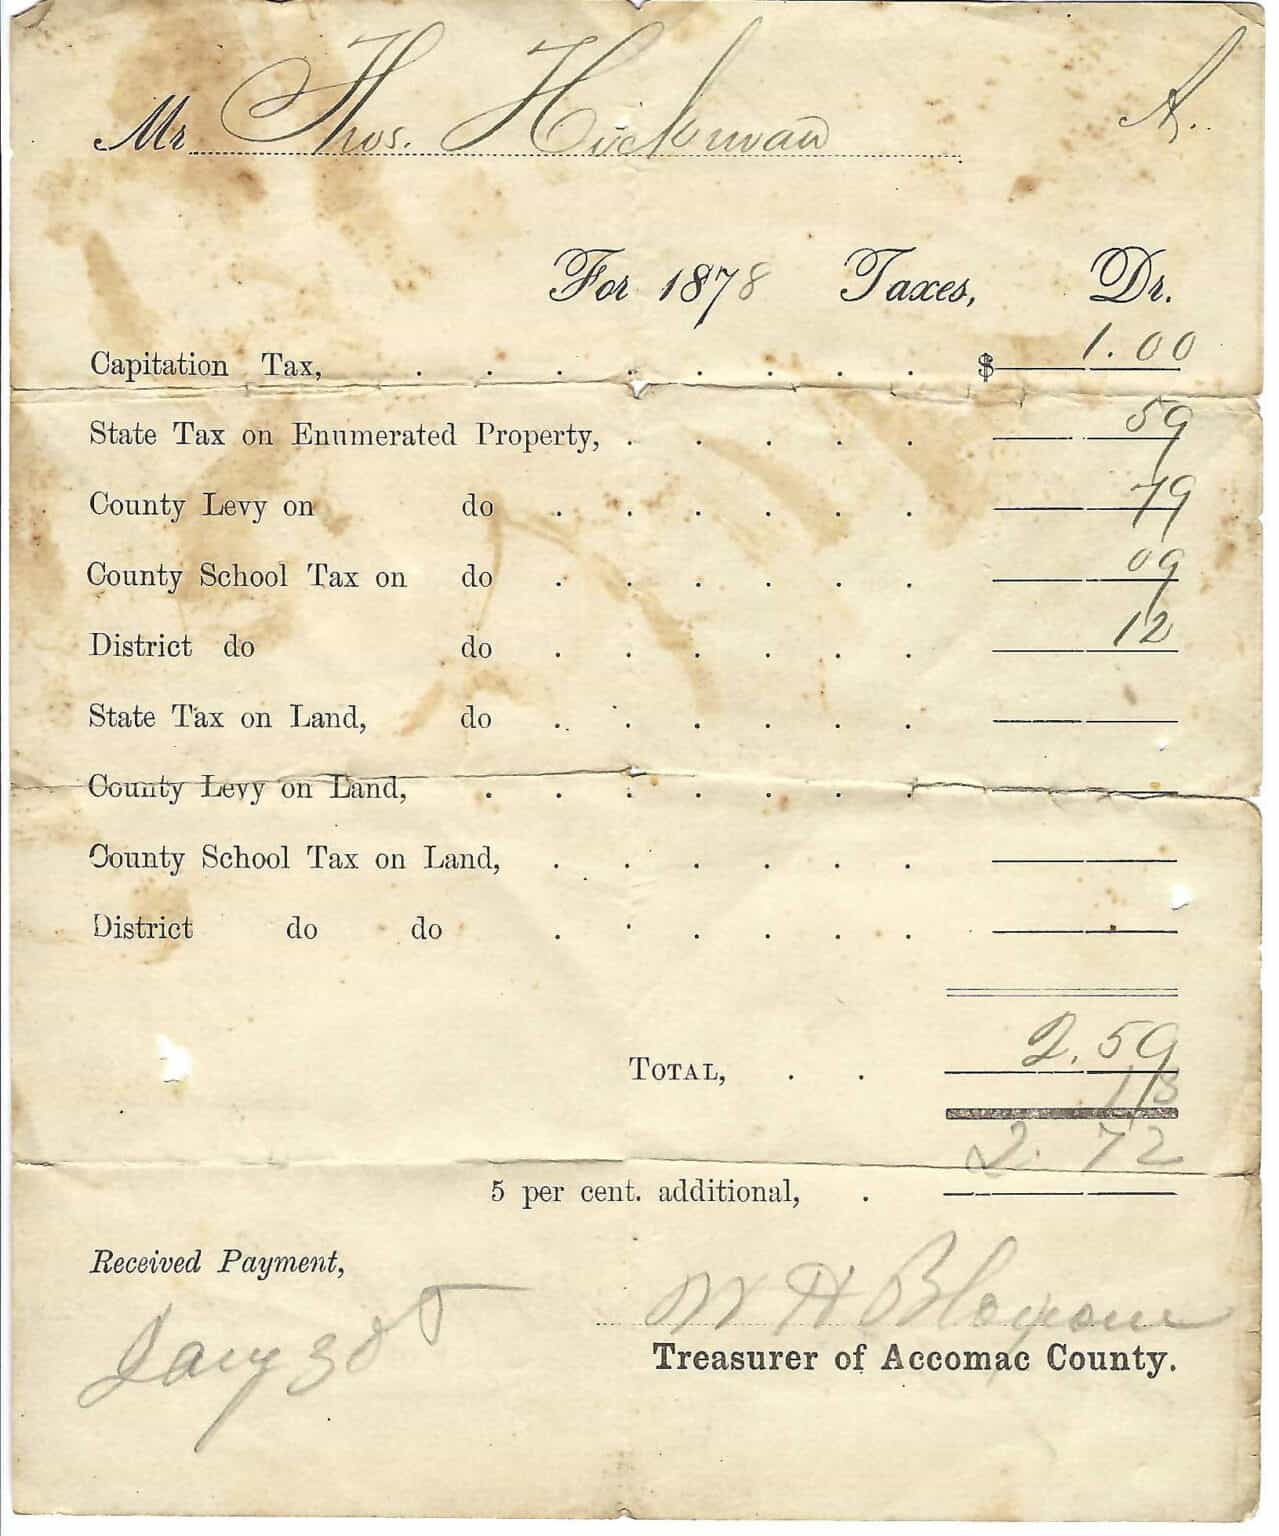 Mr Thos. Hickman A.
For 1878 Taxes, Dr.
Capitation Tax, . . . . . . . . $ 1.00
State Tax on Enumerated Property, . . . . . 59
County Levy on do . . . . . . 79
County School Tax on do . . . . . . 09
District do do . . . . . . 12
State Tax on Land, do . . . . . .
County Levy on Land, . . . . . . .
County School Tax on Land, . . . . . .
District do do . . . . . .
TOTAL, . . 2.59
13
2.72
5 per cent. additional, .
Received Payment,
W H Bloxom
Jany 3d
Treasurer of Accomac County.